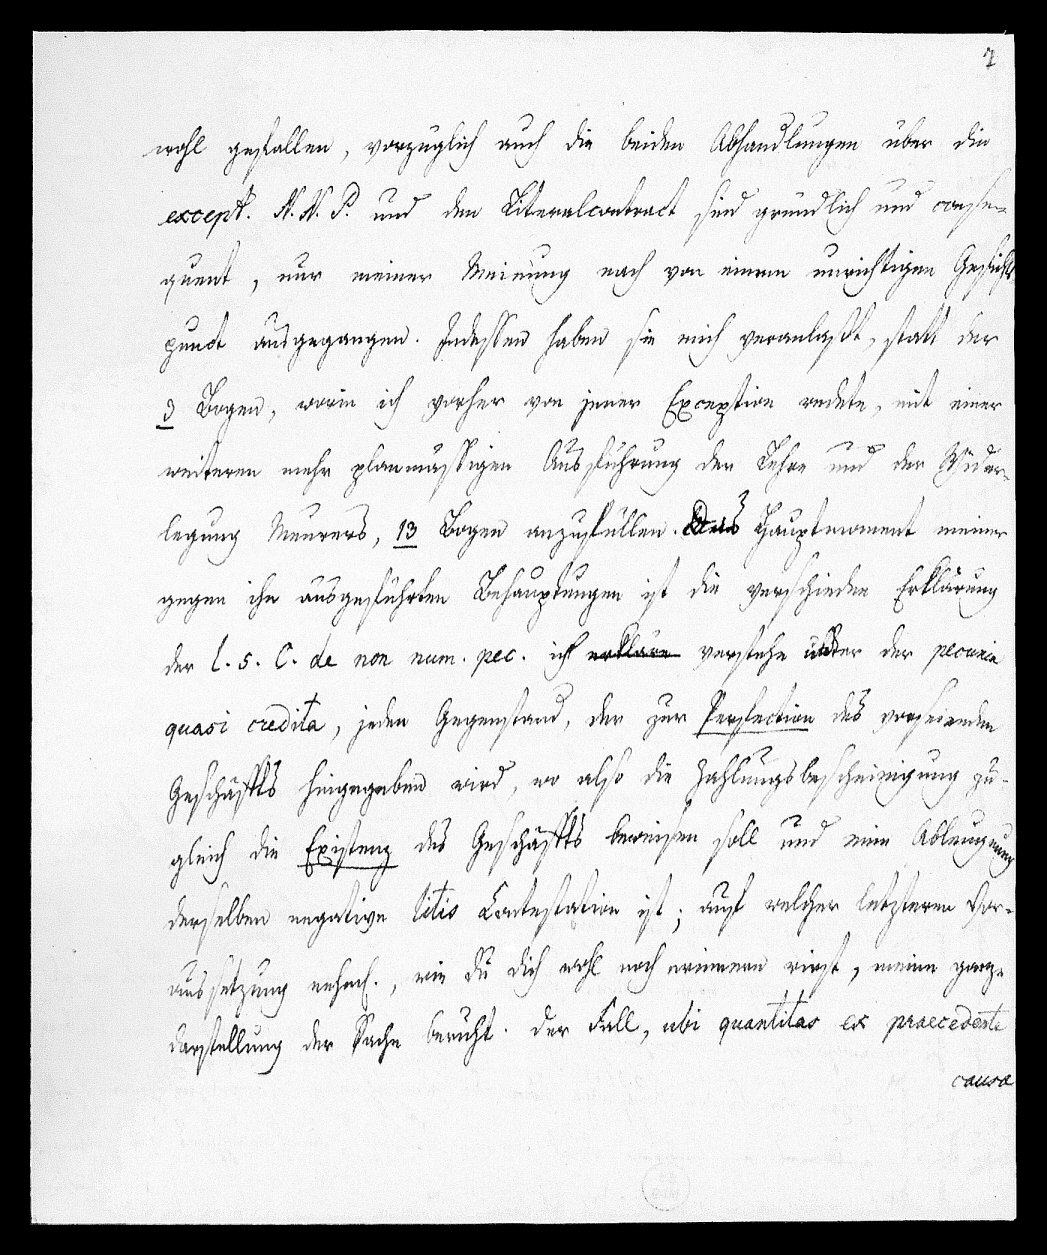 2
wohl gefallen, vorzüglich auch die beiden Abhandlungen über die
except. N. N. P. und den Literalcontract sind gründlich und conse-
quent, nur meiner Meinung nach von einem unrichtigen Gesichts
punct ausgegangen. Indessen haben sie mich veranlaßt, statt der
3 Bogen, worin ich vorher von jener Exception redete, mit einer
weiteren mehr planmässigen Ausführung der Lehre und der Wider-
legung Meurers, 13 Bogen anzufüllen. Das Hauptmoment meiner
gegen ihn ausgeführten Behauptungen ist die verschiedene Erklärung
der l. 5. C. de non num. pec. ich erkläre verstehe unter der pecunia
quasi credita, jeden Gegenstand, der zur Perfection des
Geschäfts hingegeben wird, wo also die Zahlungsbescheinigung zu-
gleich die Existenz des Geschäfts beweisen soll und eine Ableugnung
derselben negative litis Contestation ist; auf welcher letzteren Vor-
aussetzung, wie du dich wohl noch erinnern wirst, meine ganze
Darstellung der Sache beruht. Der Fall, ubi quantitas ex praecedente
causa